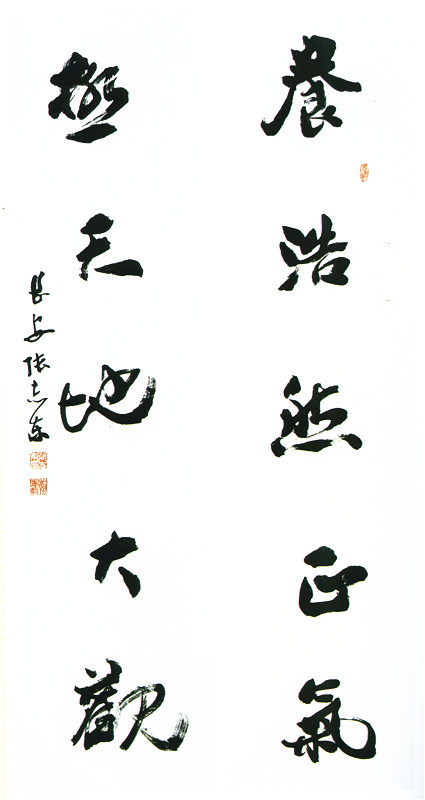 養浩然正氣
極天地大觀
長安張志安